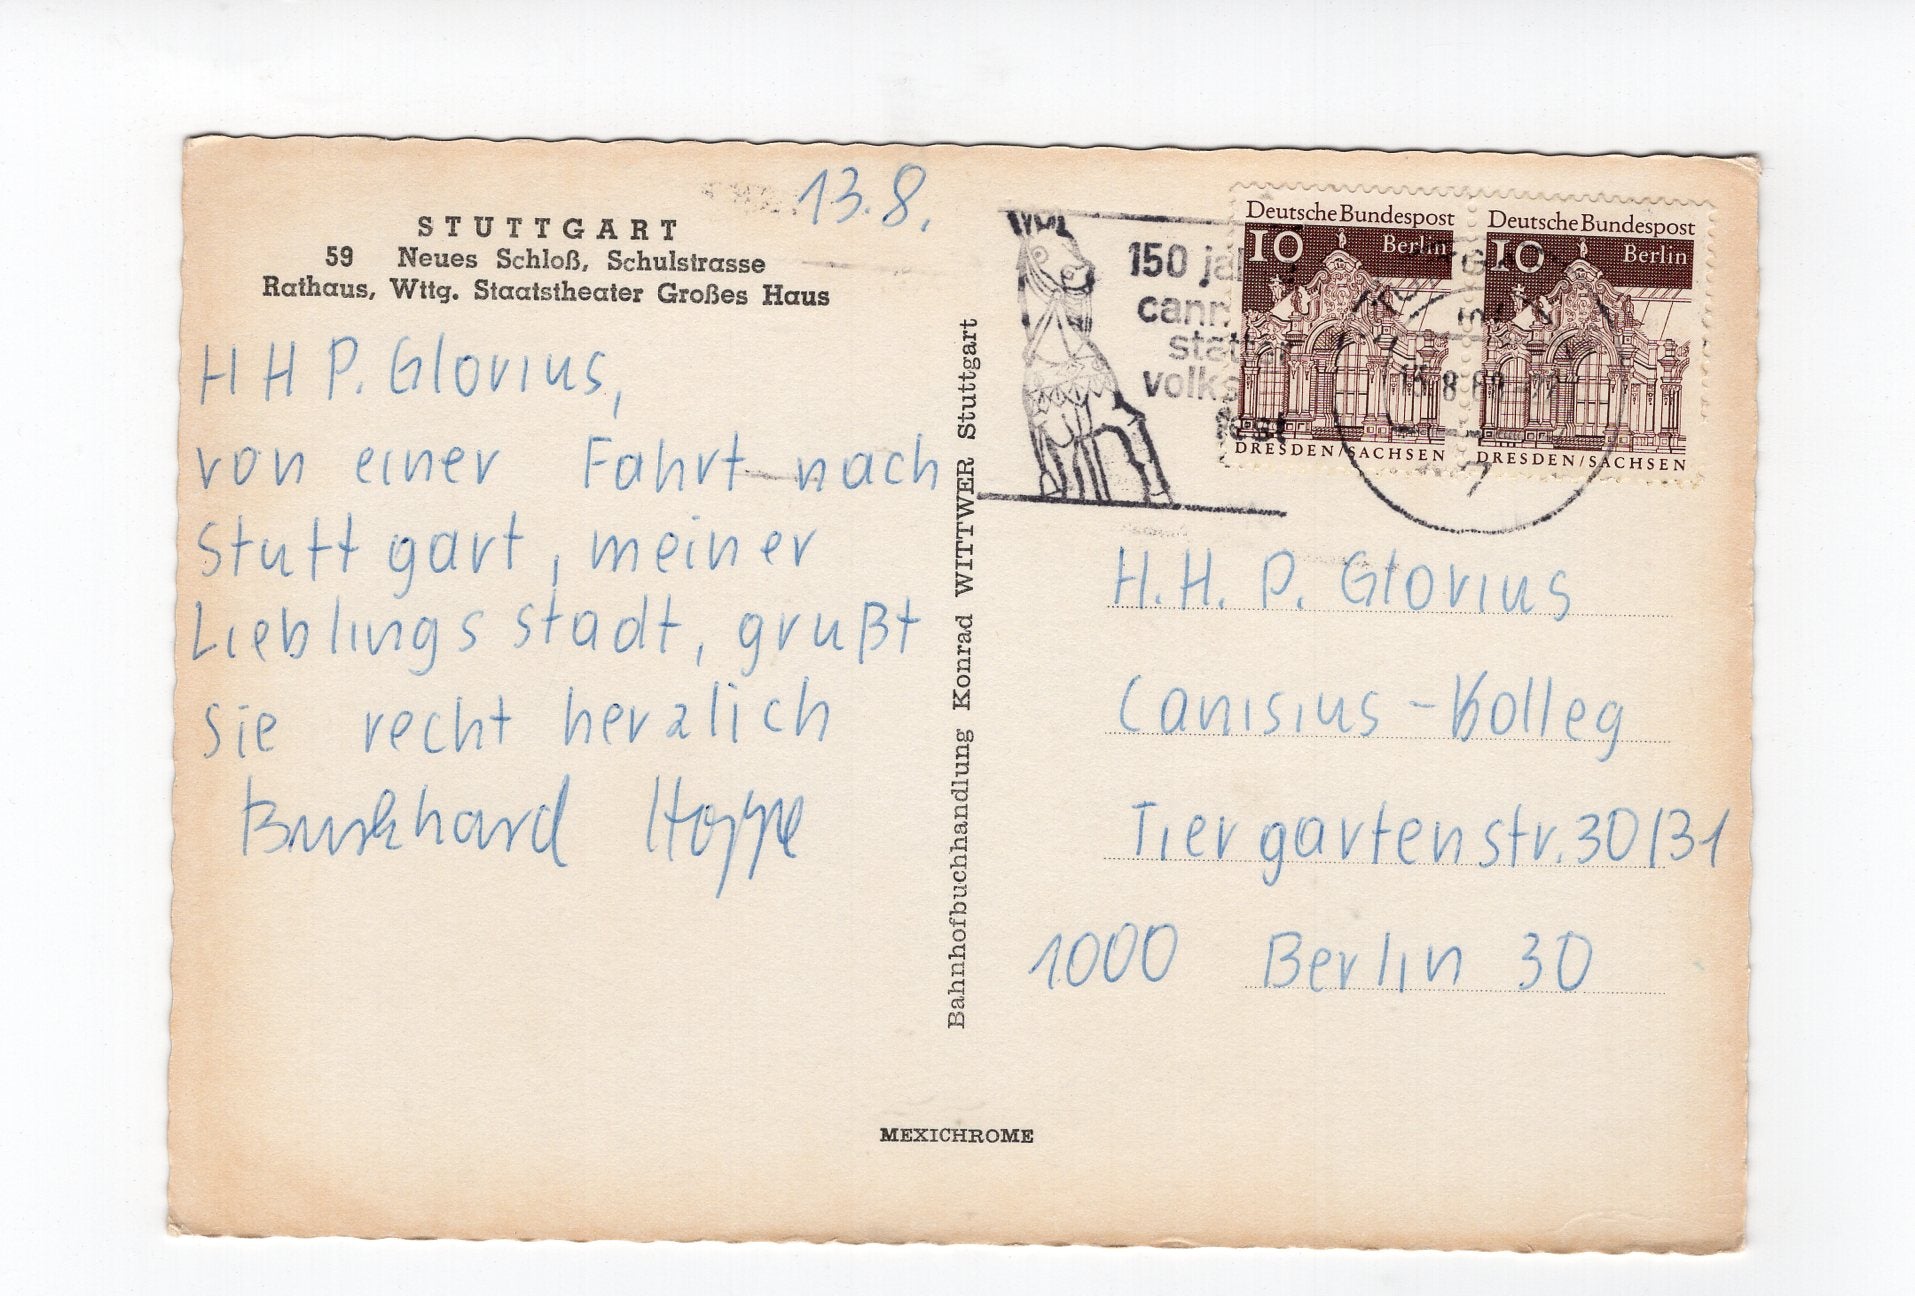 13.8.
STUTTGART
59 Neues Schloß, Schulstrasse
Rathaus, Wttg. Staatstheater Großes Haus
H H P. Glorius,
von einer Fahrt nach
Stuttgart, meiner
Lieblingsstadt, grußt
Sie recht herzlich
Burkhard Hoppe
Bahnhofbuchhandlung Konrad WITTWER Stuttgart
MEXICHROME
150 ja
cann
statter
volks
fest
Deutsche Bundespost
10 Berlin
DRESDEN/SACHSEN
Deutsche Bundespost
10 Berlin
DRESDEN/SACHSEN
7
H. H. P. Glorius
Canisius-Kolleg
Tiergartenstr. 30/31
1000 Berlin 30